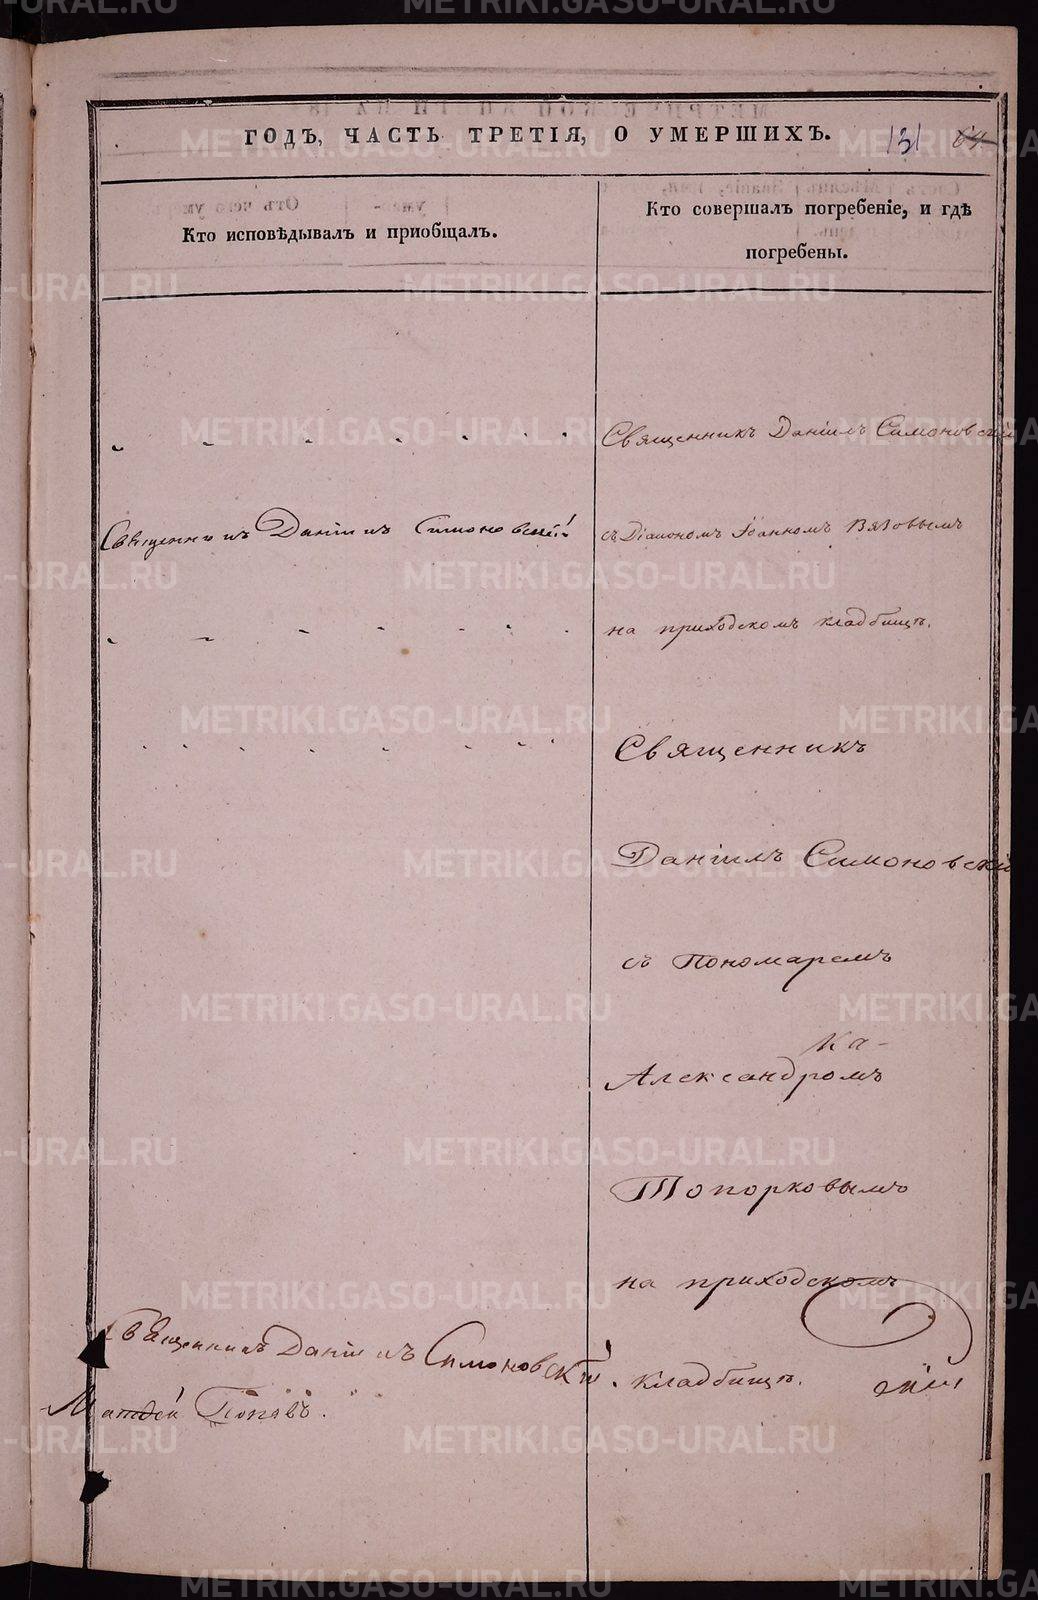 ГОДЪ, ЧАСТЬ ТРЕТІЯ, О УМЕРШИХЪ.
131
64
Кто исповѣдывалъ и приобщалъ.
Кто совершалъ погребеніе, и гдѣ
погребены.
Священникъ Даніилъ Симоновскій
Священникъ Даніилъ Симоновскій
съ Діакономъ Іоанномъ Вязовымъ
на приходскомъ кладбищѣ.
Священникъ
Даніилъ Симоновскій
съ Пономаремъ
Ка-
Александромъ
Топорковымъ
на приходскомъ
Священникъ Даніилъ Симоновскій.
кладбищѣ.
Матѳей Поповъ.
METRIKI.GASO-URAL.RU